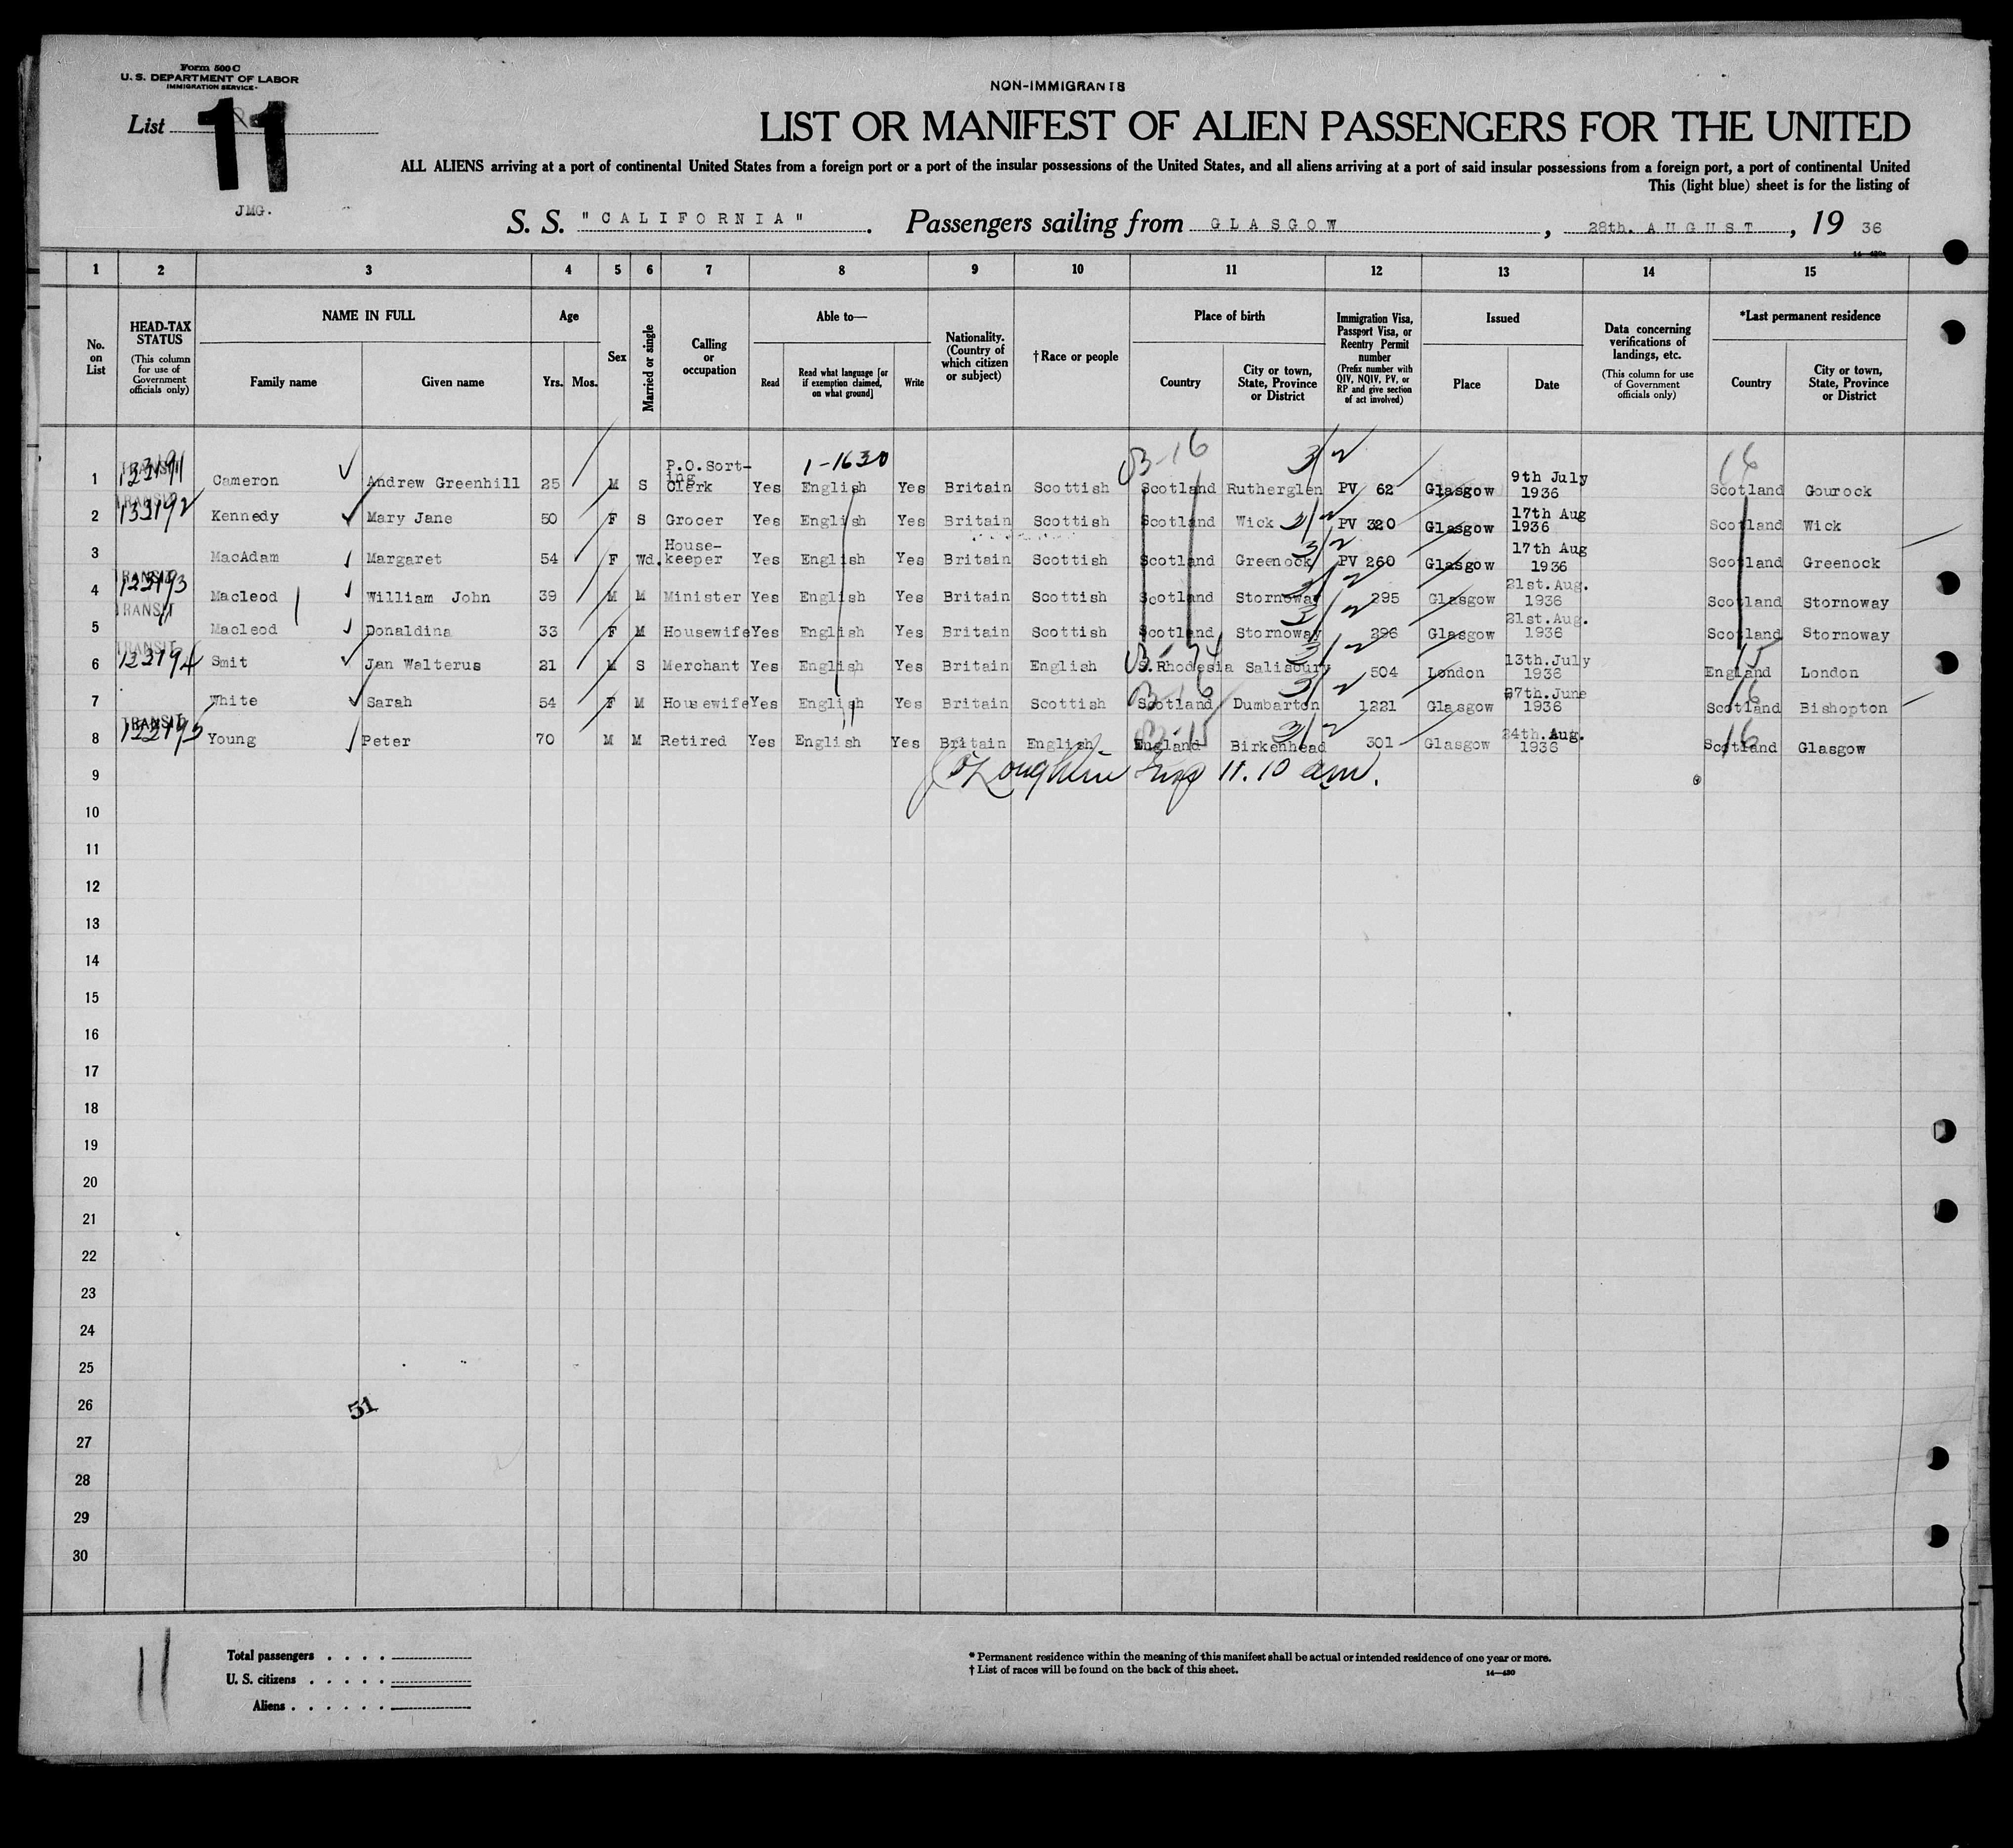 Form 500 C
U. S. DEPARTMENT OF LABOR
IMMIGRATION SERVICE
NON-IMMIGRANTS
List 11
LIST OR MANIFEST OF ALIEN PASSENGERS FOR THE UNITED
ALL ALIENS arriving at a port of continental United States from a foreign port or a port of the insular possessions of the United States, and all aliens arriving at a port of said insular possessions from a foreign port, a port of continental United
This (light blue) sheet is for the listing of
JMG.
S. S. "CALIFORNIA". Passengers sailing from GLASGOW, 28th. AUGUST, 19 36
1 2 3 4 5 6 7 8 9 10 11 12 13 14 15
No. on List
HEAD-TAX STATUS (This column for use of Government officials only)
NAME IN FULL Family name Given name
Age Yrs. Mos.
Sex
Married or single
Calling or occupation
Able to— Read Read what language [or if exemption claimed, on what ground] Write
Nationality. (Country of which citizen or subject)
†Race or people
Place of birth Country City or town, State, Province or District
Immigration Visa, Passport Visa, or Reentry Permit number (Prefix number with QIV, NQIV, PV, or RP and give section of act involved)
Issued Place Date
Data concerning verifications of landings, etc. (This column for use of Government officials only)
*Last permanent residence Country City or town, State, Province or District
1-1630 B-16 3/2 16
1 TRANSIT 123191 Cameron Andrew Greenhill 25 M S P.O.Sorting Clerk Yes English Yes Britain Scottish Scotland Rutherglen PV 62 Glasgow 9th July 1936 Scotland Gourock
2 TRANSIT 133192 Kennedy Mary Jane 50 F S Grocer Yes English Yes Britain Scottish Scotland Wick 3/2 PV 320 Glasgow 17th Aug 1936 Scotland Wick
3 MacAdam Margaret 54 F Wd. House-keeper Yes English Yes Britain Scottish Scotland Greenock 3/2 PV 260 Glasgow 17th Aug 1936 Scotland Greenock
4 TRANSIT 123193 Macleod William John 39 M M Minister Yes English Yes Britain Scottish Scotland Stornoway 3/2 295 Glasgow 21st.Aug. 1936 Scotland Stornoway
5 TRANSIT Macleod Donaldina 33 F M Housewife Yes English Yes Britain Scottish Scotland Stornoway 3/2 296 Glasgow 21st.Aug. 1936 Scotland Stornoway
6 TRANSIT 123194 Smit Jan Walterus 21 M S Merchant Yes English Yes Britain English S.Rhodesia Salisbury 3/2 504 London 13th.July 1936 England 15 London
7 White Sarah 54 F M Housewife Yes English Yes Britain Scottish B-16 Scotland Dumbarton 3/2 1221 Glasgow 27th.June 1936 16 Scotland Bishopton
8 TRANSIT 123195 Young Peter 70 M M Retired Yes English Yes Britain English B-15 England Birkenhead 3/2 301 Glasgow 24th.Aug. 1936 16 Scotland Glasgow
9 O'Loughlin Insp 11.10 am.
10
11
12
13
14
15
16
17
18
19
20
21
22
23
24
25
26 51
27
28
29
30
11
Total passengers
U. S. citizens
Aliens
* Permanent residence within the meaning of this manifest shall be actual or intended residence of one year or more.
† List of races will be found on the back of this sheet. 14—430